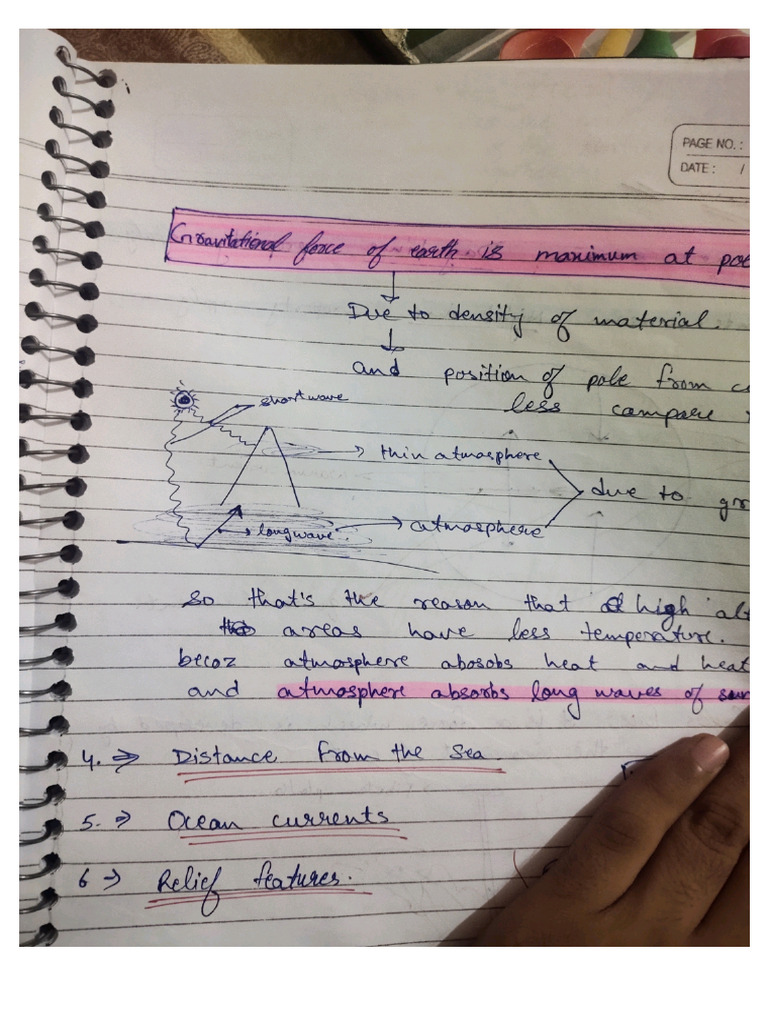 PAGE NO. :
DATE : /
Gravitational force of earth is maximum at
Due to density of material.
and position of pole from
less compare
shortwave
thin atmosphere
due to
longwave.
atmosphere
So that's the reason that high
areas have less temperature.
becoz atmosphere abosobs heat and heat
and atmosphere absorbs long waves of
4. ⇒ Distance from the Sea.
5. ⇒ Ocean currents
6 → Relief features.